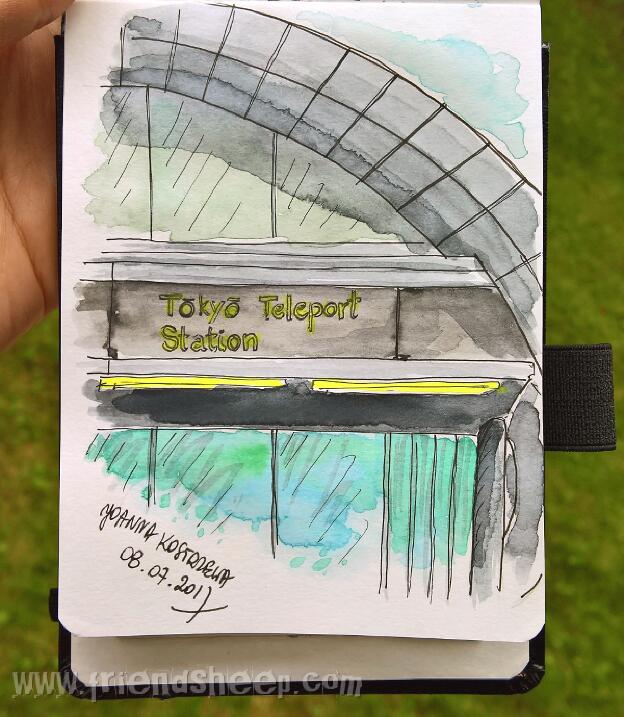 Tōkyō Teleport
Station
JOANNA KOSTRZEWA
08.07.2017
www.friendsheep.com